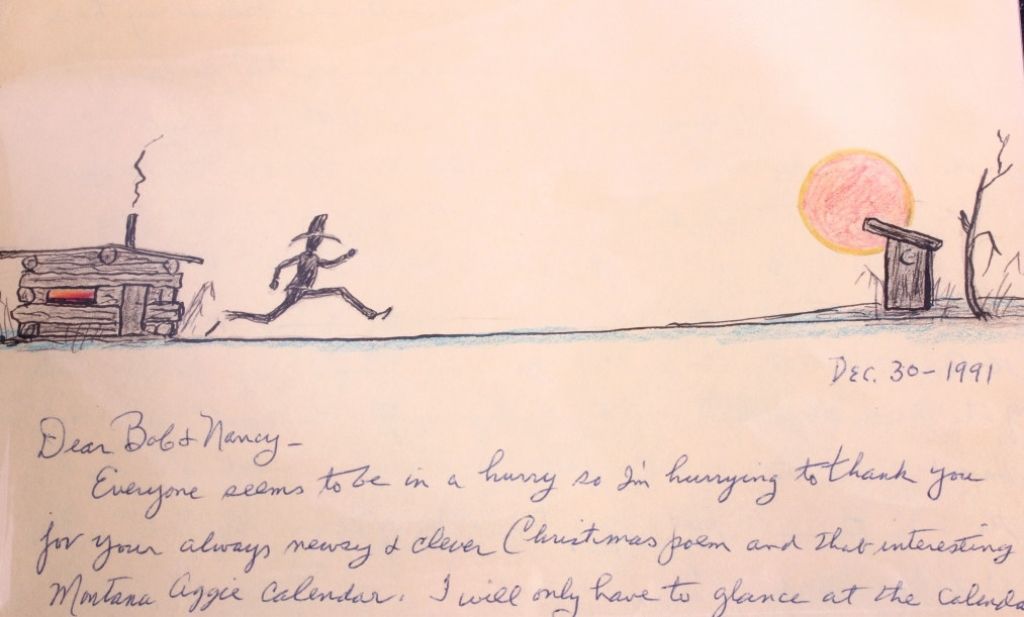 Dec. 30-1991
Dear Bob & Nancy-
Everyone seems to be in a hurry so I'm hurrying to thank you
for your always newsy & clever Christmas poem and that interesting
Montana Aggie Calendar. I will only have to glance at the calenda